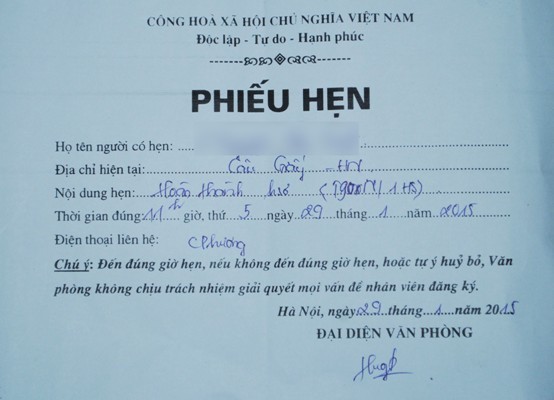 CÔNG HOÀ XÃ HỘI CHỦ NGHĨA VIỆT NAM
Đôc lâp - Tự do - Hạnh phúc
PHIẾU HẸN
Họ tên người có hẹn:
Địa chỉ hiện tại: Cầu Giấy - HN
Nội dung hẹn: Hoàn thành hồ sơ
Thời gian đúng: 11h giờ, thứ 5 ngày 29 tháng 1 năm 2015
Điện thoại liên hệ: C Phương
Chú ý: Đến đúng giờ hẹn, nếu không đến đúng giờ hẹn, hoặc tự ý huỷ bỏ, Văn
phòng không chịu trách nhiệm giải quyết mọi vấn đề nhân viên đăng ký.
Hà Nội, ngày 29 tháng 1 năm 2015
ĐẠI DIỆN VĂN PHÒNG